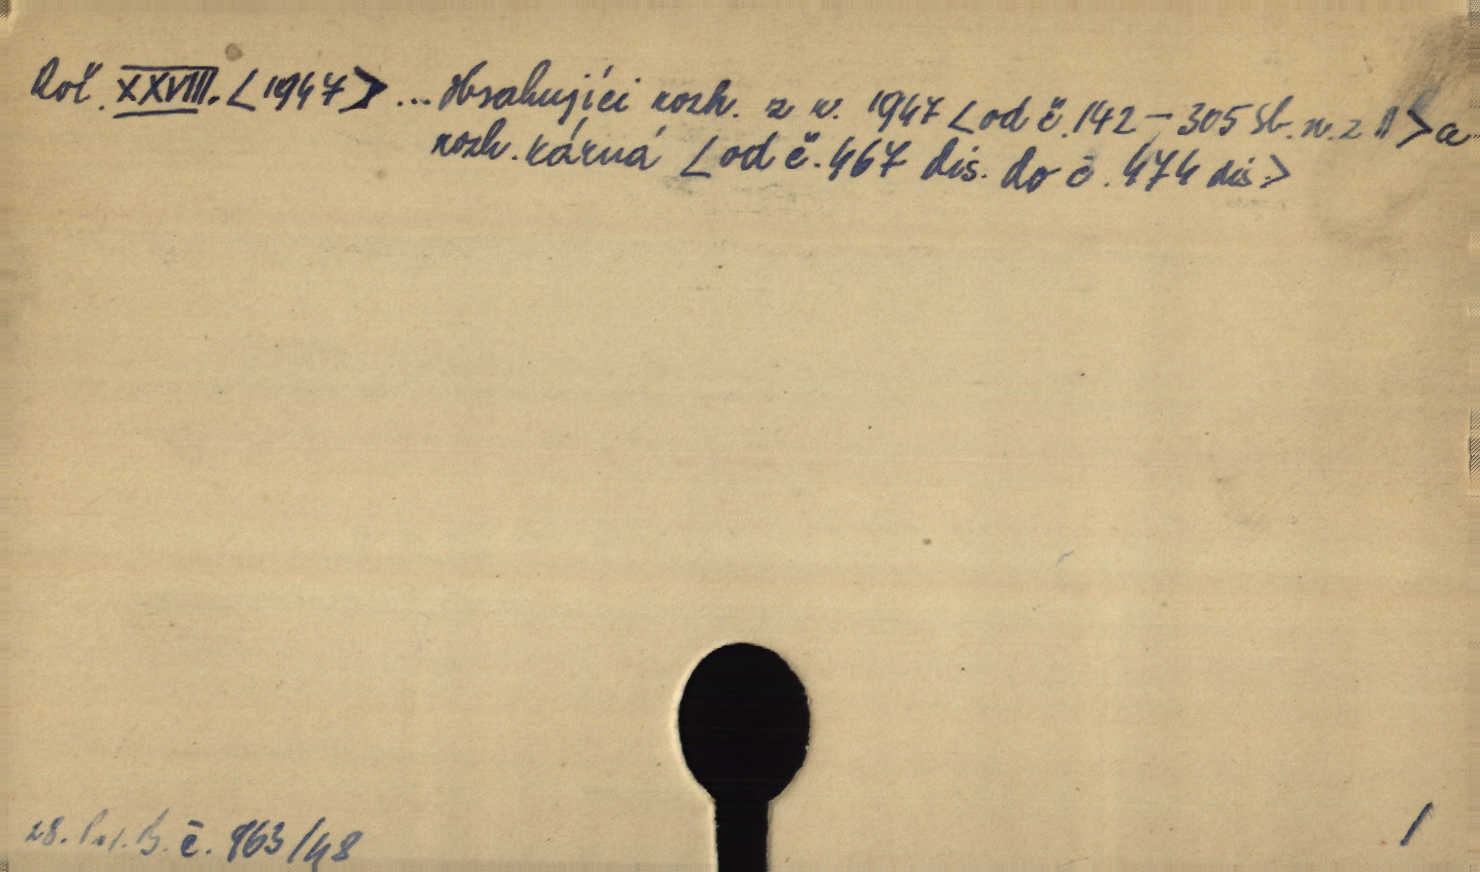 Roč. XXVIII. <1947> ... Obsahující rozh. z r. 1947 <od č. 142 – 305 Sb. n. z II> a
rozh. kárná <od č. 467 dis. do č. 474 dis.>
28. B. č. 963/48
/